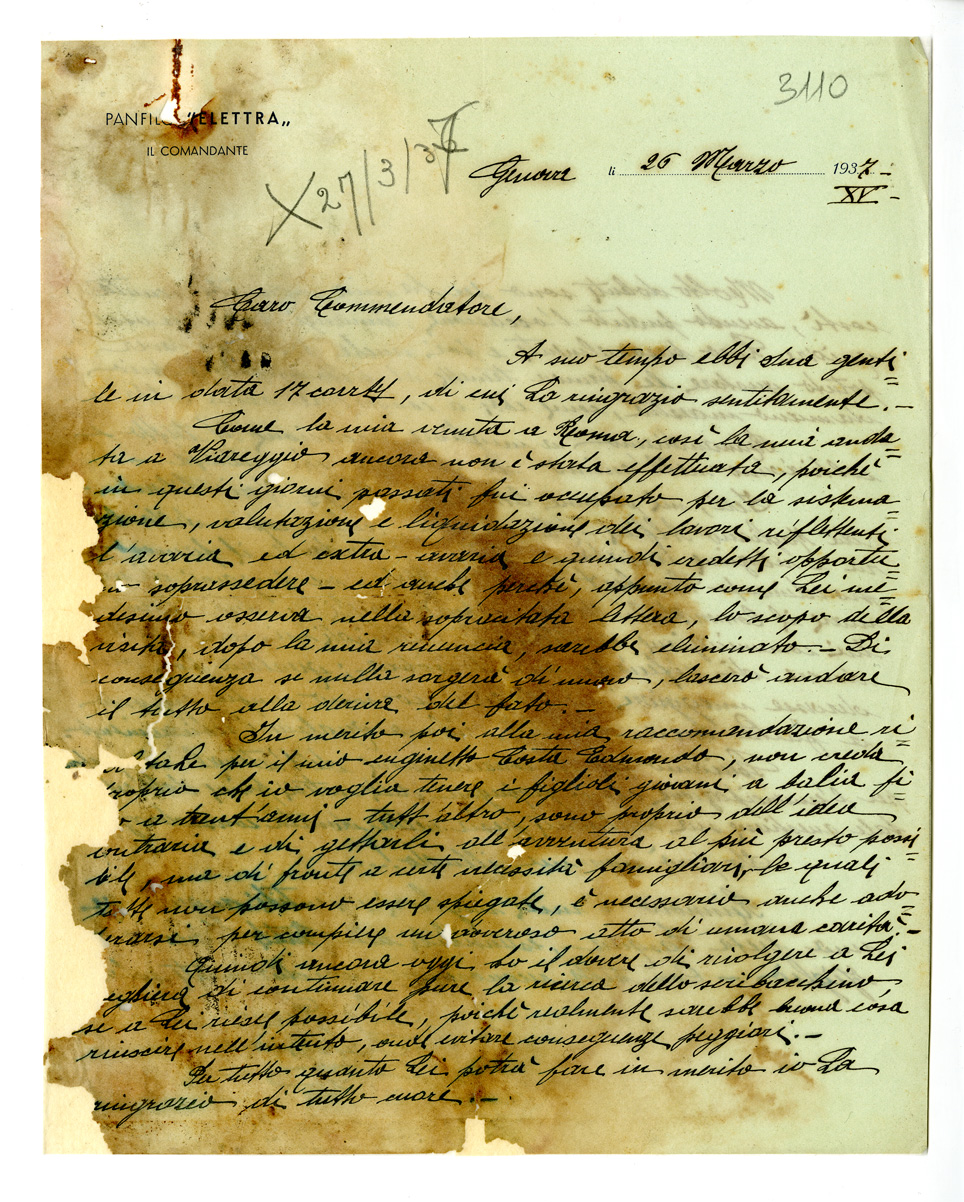 3110
PANFILO "ELETTRA„
IL COMANDANTE
X 27/3/37
Genova li 26 Marzo 1937.-
XV -
Caro Commendatore,
A suo tempo ebbi Sua genti=
le in data 17 corr, di cui La ringrazio sentitamente.-
Come la mia venuta a Roma, così la mia anda=
ta a Viareggio ancora non è stata effettuata, poichè
in questi giorni passati fui occupato per la sistema=
zione, valutazione e liquidazione dei lavori riflettenti
l'avaria ed extra-avaria e quindi credetti opportu=
soprassedere - ed anche perchè, appunto come Lei me=
desimo osserva nella sopracitata lettera, lo scopo della
visita, dopo la mia rinuncia, sarebbe eliminato.- Di
conseguenza se nulla sorgerà di nuovo, lascerò andare
il tutto alla deriva del fato.-
In merito poi alla mia raccomandazione ri=
per il mio cuginetto Costa Edmondo, non creda
proprio che io voglia tenere i figlioli giovani a balia fi=
a trent'anni - tutt'altro, sono proprio dell'idea
contraria e di gettarli all'avventura al più presto possi=
bile, ma di fronte a certe necessità famigliari, le quali
non possono essere spiegate, è necessario anche ado=
perarsi per compiere un doveroso atto di umana carità.-
Quindi ancora oggi ho il dovere di rivolgere a Lei
di continuare pure la ricerca dello scribacchino,
se a Lei riesce possibile, poichè realmente sarebbe buona cosa
riuscire nell'intento, onde evitare conseguenze peggiori.-
Per tutto quanto Lei potrà fare in merito io La
ringrazio di tutto cuore.-